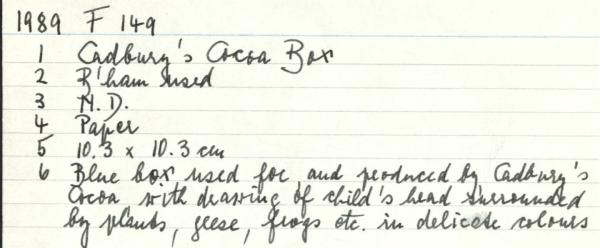 1989 F 149
1 Cadbury's Cocoa Box
2 B'ham used
3 N.D.
4 Paper
5 10.3 x 10.3 cm
6 Blue box used for, and produced by Cadbury's
Cocoa with drawing of child's head surrounded
by plants, geese, frogs etc. in delicate colours